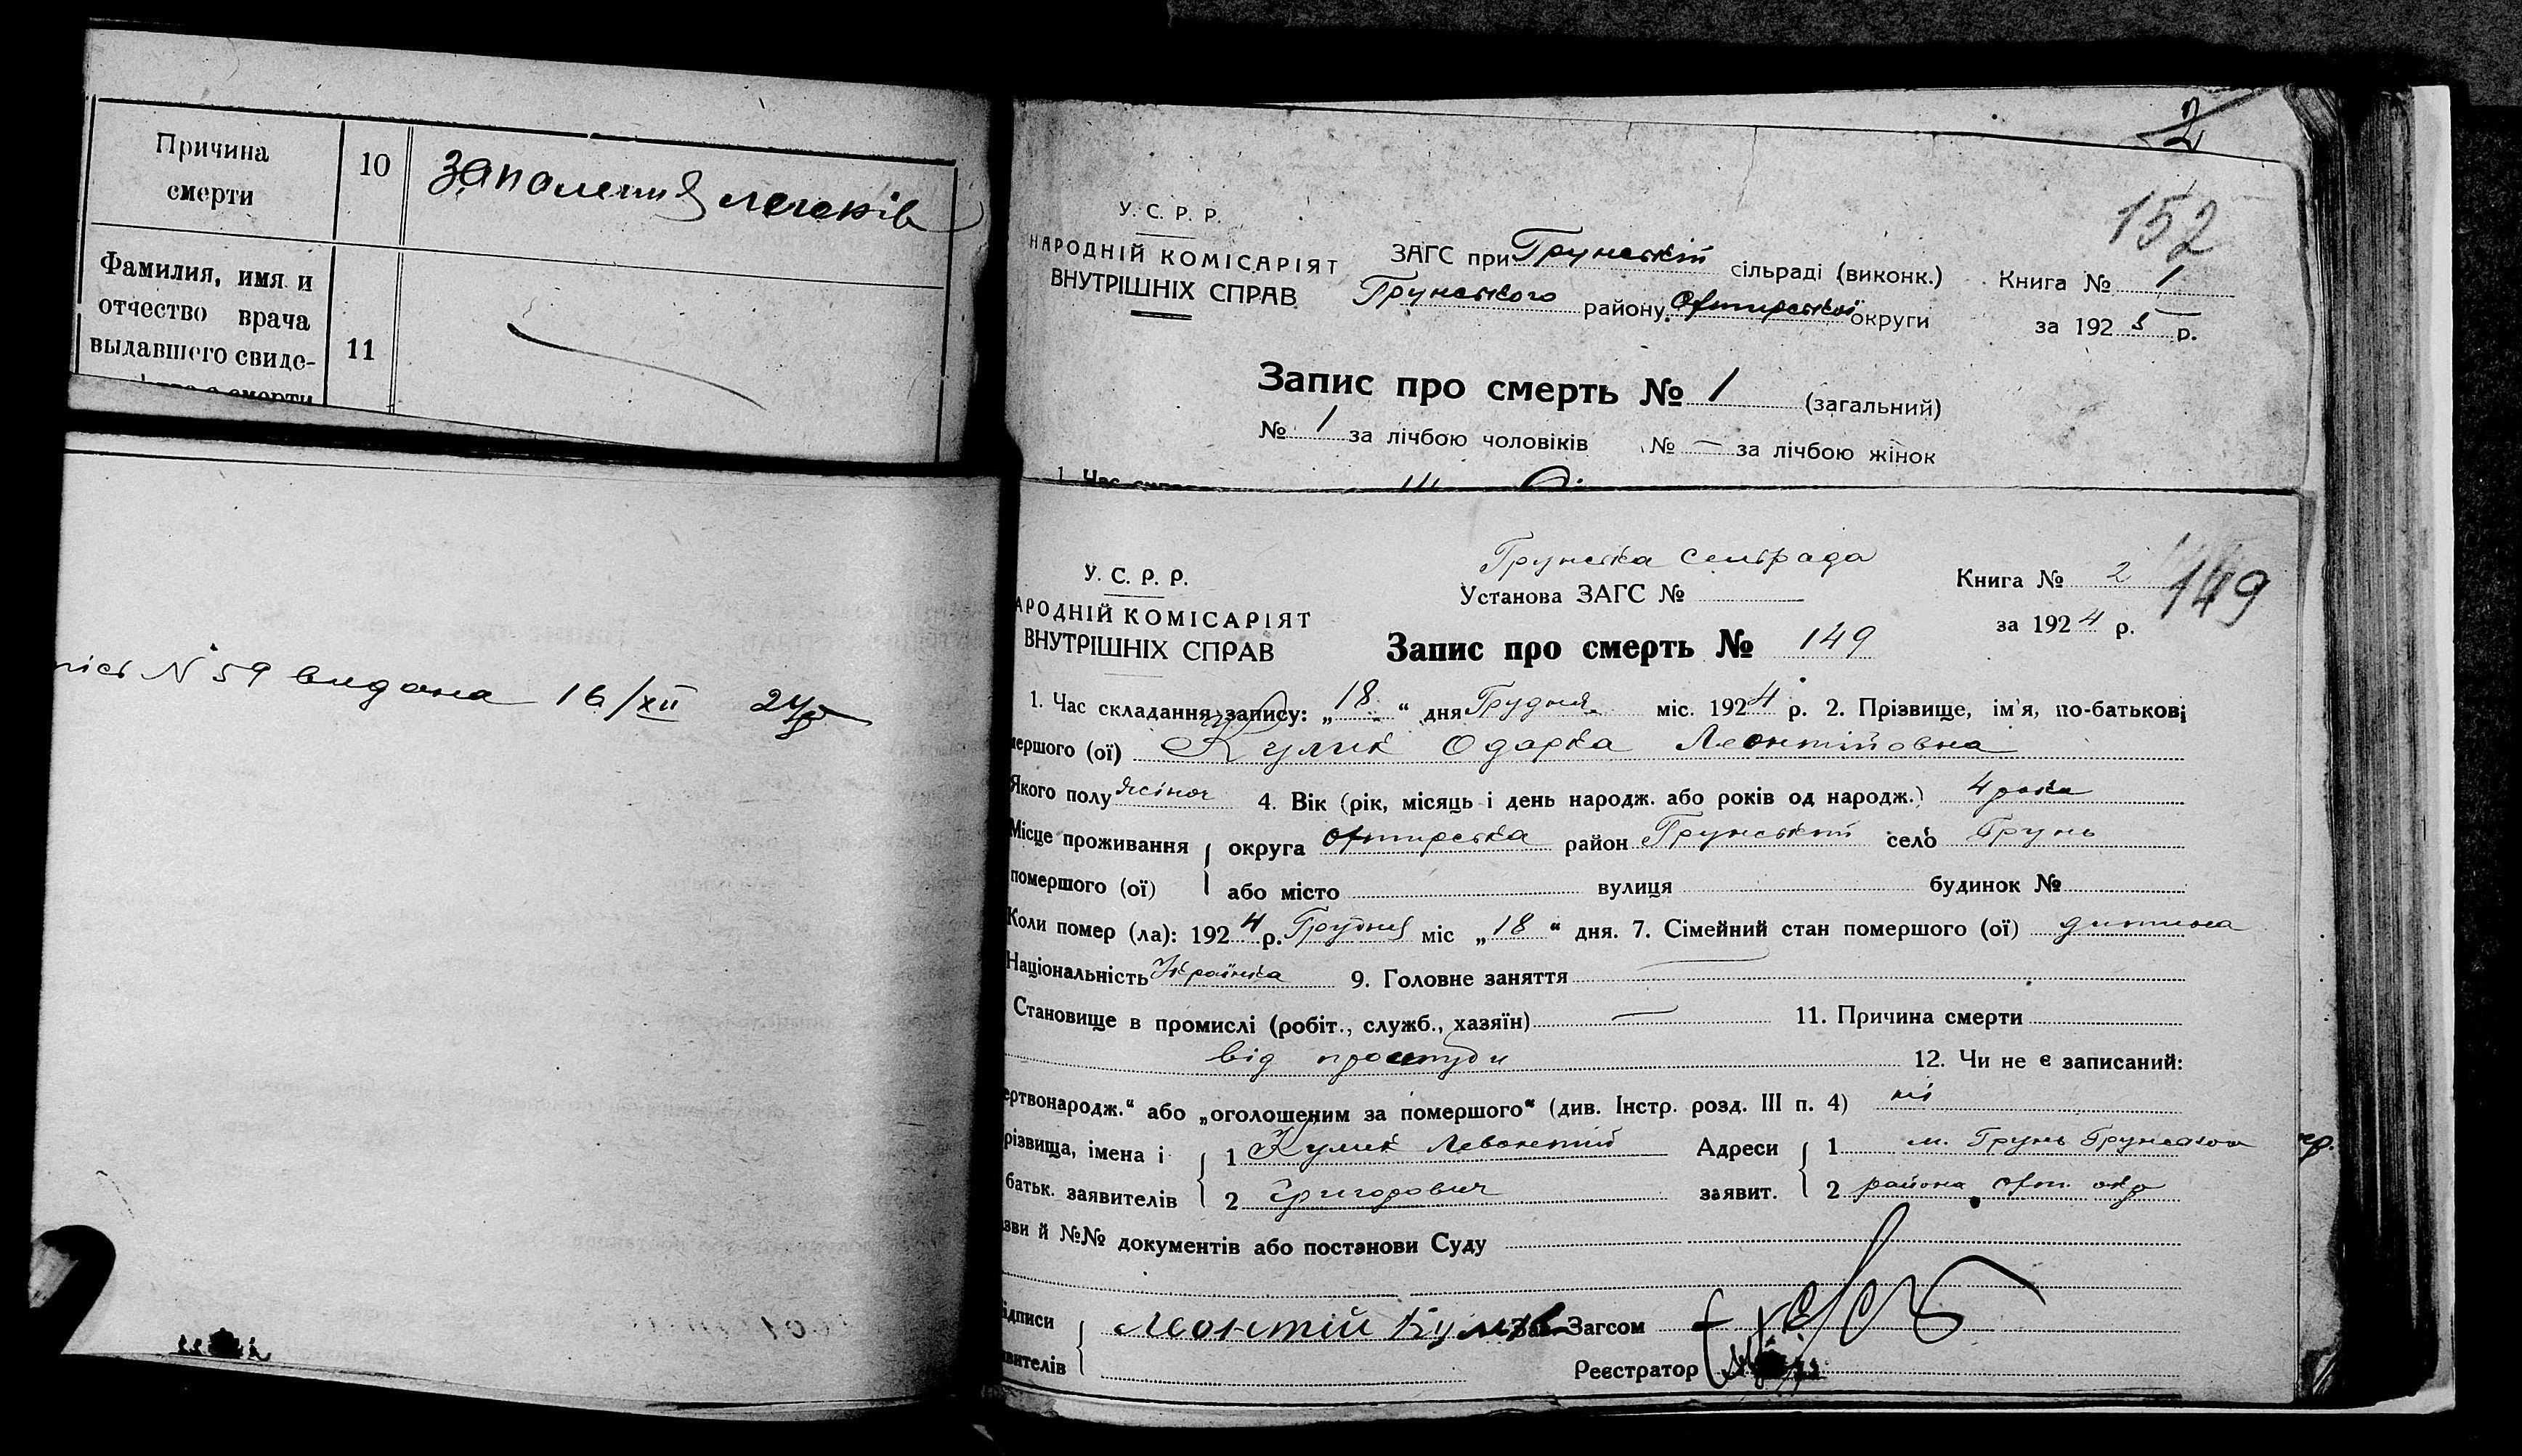 Причина
смерти
10
запаления легеків
Фамилия, имя и
отчество врача
выдавшего свиде-
11
смерти
N 59 видана 16/XII 24р
2
152
У. С. Р. Р.
НАРОДНІЙ КОМІСАРІЯТ
ВНУТРІШНІХ СПРАВ
ЗАГС при Грунській сільраді (виконк.)
Грунського району Охтирської округи
Книга № 1
за 1925 р.
Запис про смерть № 1 (загальний)
№ 1 за лічбою чоловіків № — за лічбою жінок
1. Час
У. С. Р. Р.
АРОДНІЙ КОМІСАРІЯТ
ВНУТРІШНІХ СПРАВ
Грунська сельрада
Установа ЗАГС №
Книга № 2
149
за 1924 р.
Запис про смерть № 149
1. Час складання запису: „18“ дня Грудня міс. 1924 р. 2. Прізвище, ім'я, по-батькові
мершого (ої) Кулик Одарка Леонтійовна
Якого полу жіноч 4. Вік (рік, місяць і день народж. або років од народж.) 4 рока
Місце проживання округа Охтирська район Грунський село Грунь
помершого (ої) або місто вулиця будинок №
Коли помер (ла): 1924 р. Грудня міс „18“ дня. 7. Сімейний стан помершого (ої) дитина
Національність Українка 9. Головне заняття —
Становище в промислі (робіт., служб., хазяїн) — 11. Причина смерти
від простуди 12. Чи не є записаний:
ертвонародж.“ або „оголошеним за помершого“ (див. Інстр. розд. III п. 4) ні
різвища, імена і 1 Кулик Левонтий Адреси 1 м. Грунь Грунського
батьк. заявителів 2 Григорович заявит. 2 района Охт. окр
зви й №№ документів або постанови Суду
ідписи Леонтій Кулик Зав. Загсом
явителів Реєстратор